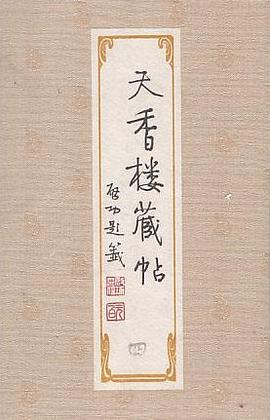 天香楼藏帖
启功题签
四